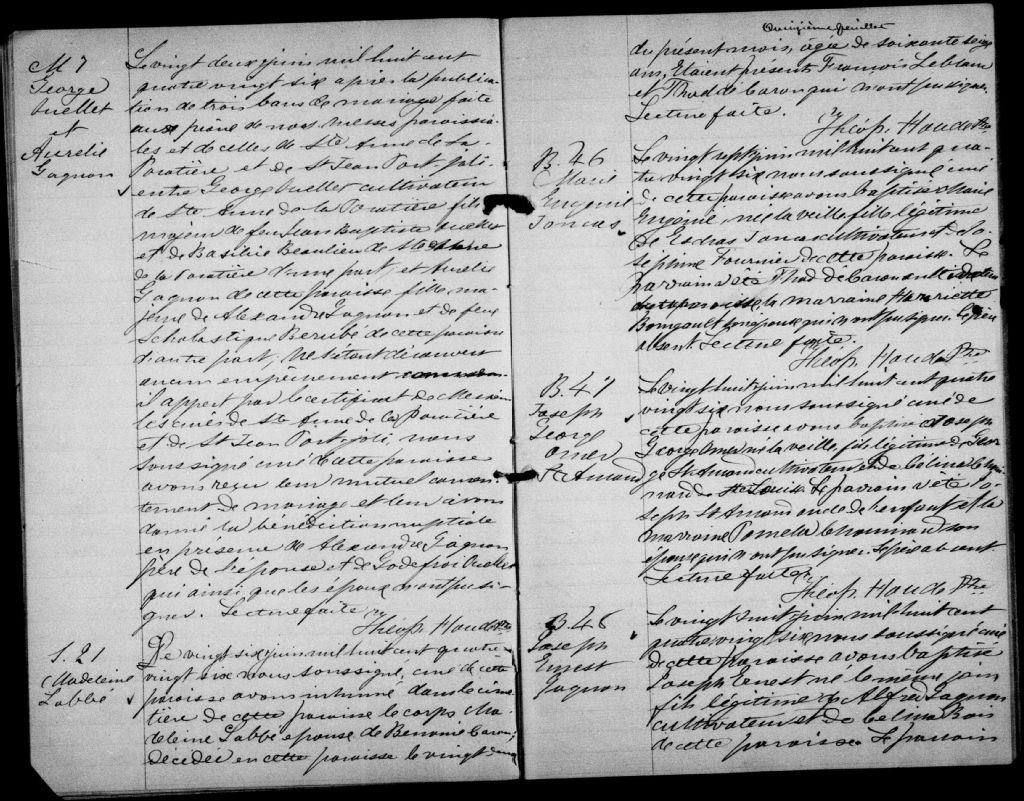 M 7
George
Ouellet
et
Aurélie
Gagnon
Le vingt deux juin mil huit cent
quatre vingt six après la publica-
tion de trois bans de mariage faite
aux prône de nos messes paroissia-
les et de celles de Ste Anne de La
Pocatière et de St Jean Port Joli
entre George Ouellet cultivateur
de Ste Anne de la Pocatière fils
majeur de feu Jean Baptiste Ouellet
et de Basilie Beaulieu de Ste Anne
de la Pocatière d'une part, et Aurélie
Gagnon de cette paroisse fille ma-
jeure de Alexandre Gagnon et de feue
Scholastique Berubé de cette paroisse
d'autre part, ne s'étant découvert
aucun empêchement
il appert par le certificat de Messieurs
les curés de Ste Anne de la Pocatière
et de St Jean Port Joli nous
soussigné curé de cette paroisse
avons reçu leur mutuel consen-
tement de mariage et leur avons
donné la bénédiction nuptiale
en présence de Alexandre Gagnon
père de l'épouse et de Godefroi Ouellet
qui ainsi que les époux n'ont pu si-
gner. Lecture faite
Théop. Houde Ptre
S. 21
Madeleine
Labbé
Le vingt six juin mil huit cent quatre-
vingt six nous soussigné, curé de cette
paroisse avons inhumé dans le cime-
tière de cette paroisse le corps Ma-
deleine Labbé epouse de Benonie Caron,
décédée en cette paroisse le vingt
Quinzième feuillet
du présent mois, agée de soixante seize
ans, Etaient présents François Leblanc
et Thad de Caron qui n'ont pu signer.
Lecture faite.
Théop. Houde Ptre
B. 46
Marie
Eugénie
Joncas
Le vingt sept juin mil huit cent qua-
tre vingt six nous soussigné curé
de cette paroisse avons baptisé Marie
Eugénie, née la veille fille légitime
de Esdras Joncas cultivateur et Jo-
sephine Fournier de cette paroisse. Le
parrain a été Thad de Caron
la marraine Henriette
Bourgault son épouse qui n'ont pu signer. Le père
absent. Lecture faite.
Théop. Houde Ptre
B. 47
Joseph
George
Omer
St Amand
Le vingt huit juin mil huit cent quatre
vingt six nous soussigné curé de
cette paroisse avons baptisé Joseph
George Omer né la veille, fils légitime de Geor
ge St Amand cultivateur et de Célina
Le parrain a été Jo-
seph St Amand oncle de l'enfant et la
marraine Pamela son
épouse qui n'ont pu signer. Le père absent.
Lecture faite.
Théop. Houde Ptre
B. 48
Joseph
Ernest
Gagnon
Le vingt huit juin mil huit cent
quatre vingt six nous soussigné curé
de cette paroisse avons baptisé
Joseph Ernest né le même jour
fils légitime de Alfred Gagnon
cultivateur et de Célina
de cette paroisse. Le parrain